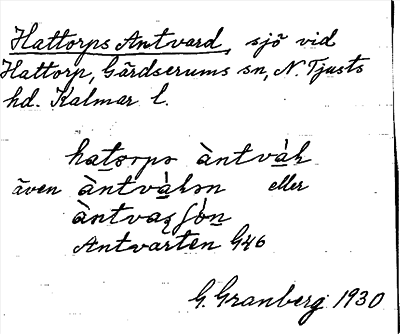 Hattorps Antvard, sjö vid
Hattorp, Gärdserums sn, N. Tjusts
hd. Kalmar l.
hatorps àntvàk
även àntvàkən eller
àntvaʂʃón
Antvarten G46
G. Granberg 1930